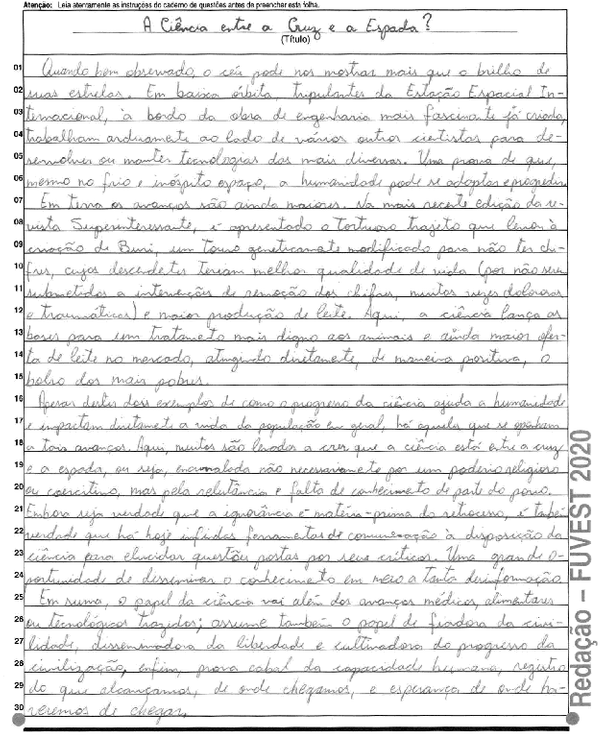 Atenção: Leia atentamente as instruções do caderno de questões antes de preencher esta folha.
A Ciência entre a Cruz e a Espada?
(Título)
01 Quando bem observado, o céu pode nos mostrar mais que o brilho de
02 suas estrelas. Em baixa órbita, tripulantes da Estação Espacial In-
03 ternacional, à bordo da obra de engenharia mais fascinante já criada,
04 trabalham arduamente ao lado de vários outros cientistas para de-
05 senvolver ou manter tecnologias das mais diversas. Uma prova de que,
06 mesmo no frio e inóspito espaço, a humanidade pode se adaptar e progredir.
07 Em terra os avanços são ainda maiores. Na mais recente edição da re-
08 vista Superinteressante, é apresentado o tortuoso trajeto que levou à
09 criação de Buri, um touro geneticamente modificado para não ter chi-
10 fres, cujos descendentes teriam melhor qualidade de vida (por não serem
11 submetidos a intervenções de remoção dos chifres, muitas vezes dolorosas
12 e traumáticas) e maior produção de leite. Aqui, a ciência lança as
13 bases para um tratamento mais digno aos animais e ainda maior ofer-
14 ta de leite no mercado, atingindo diretamente, de maneira positiva, o
15 bolso dos mais pobres.
16 Apesar destes dois exemplos de como o progresso da ciência ajuda a humanidade
17 e impactam diretamente a vida da população em geral, há aqueles que se oponham
18 a tais avanços. Aqui, muitos são levados a crer que a ciência está entre a cruz
19 e a espada, ou seja, encurralada não necessariamente por um poderio religioso
20 ou coercitivo, mas pela relutância e falta de conhecimento de parte do povo.
21 Embora seja verdade que a ignorância é matéria-prima do retrocesso, é também
22 verdade que há hoje infindas ferramentas de comunicação à disposição da
23 ciência para elucidar questões postas por seus críticos. Uma grande o-
24 portunidade de disseminar o conhecimento em meio a tanta desinformação.
25 Em suma, o papel da ciência vai além dos avanços médicos, alimentares
26 ou tecnológicos trazidos; assume também o papel de fiadora da civi-
27 lidade, disseminadora da liberdade e cultivadora do progresso da
28 civilização, enfim, prova cabal da capacidade humana, registro
29 do que alcançamos, de onde chegamos, e esperança de onde ha-
30 veremos de chegar.
Redação – FUVEST 2020